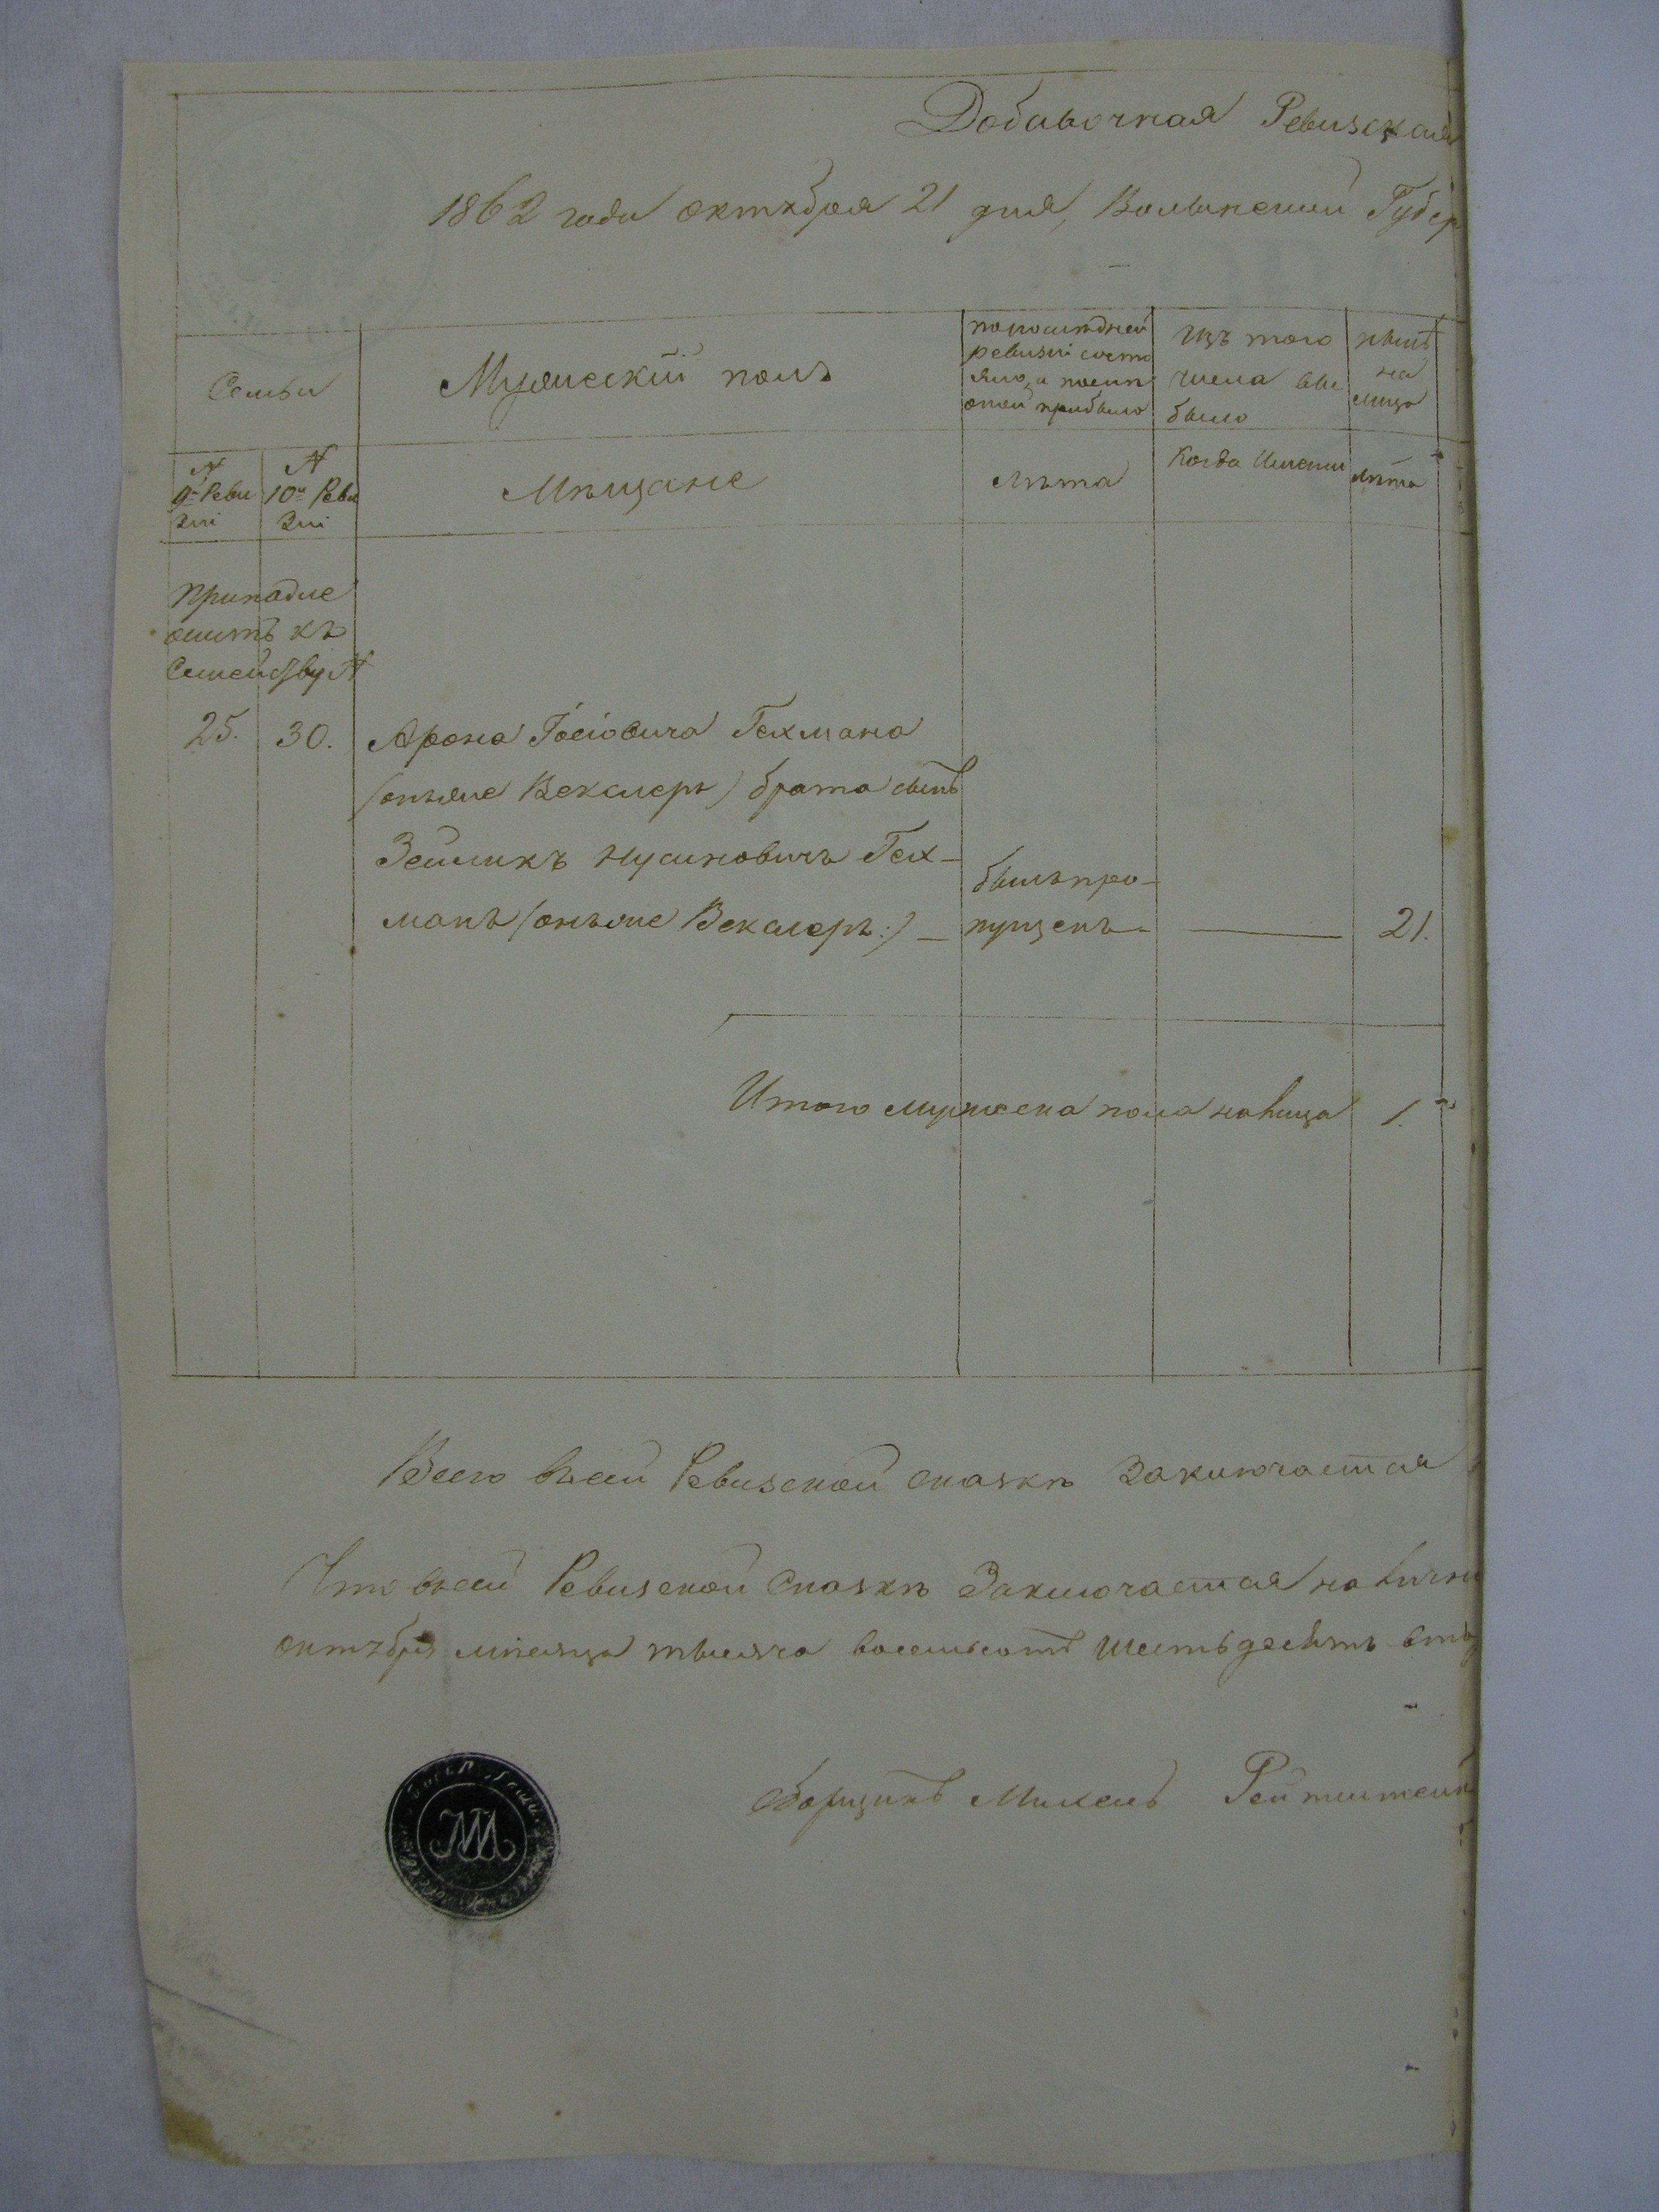 Добавочная Ревизская
1862 года октября 21 дня, Волынской Губер
Семьи
Мужеский полъ
по последней
ревизiи состо
яло, и после
оной прибыло
Изъ того
числа вы
было
ныне
на
лицо
№
9й Реви
зiи
№
10й Реви
зiи
Мещане
Лета
Когда Именно
Лета
Принадле
житъ къ
Семейству №
25. 30. Арона Iосiовича Гехмана
(онъже Векслеръ) брата сынъ
Зейликъ Нусиновичъ Гех-
манъ (онъже Векслеръ:) —
былъ про-
пущенъ.
21.
Итого мужеска пола налицо 1.
Всего въсей Ревизской сказкѣ Заключается
Что въсей Ревизской Сказкѣ Заключается налични
октября мѣсяца тысяча восемьсотъ шестьдесятъ вто
Зборщикъ Михель
М